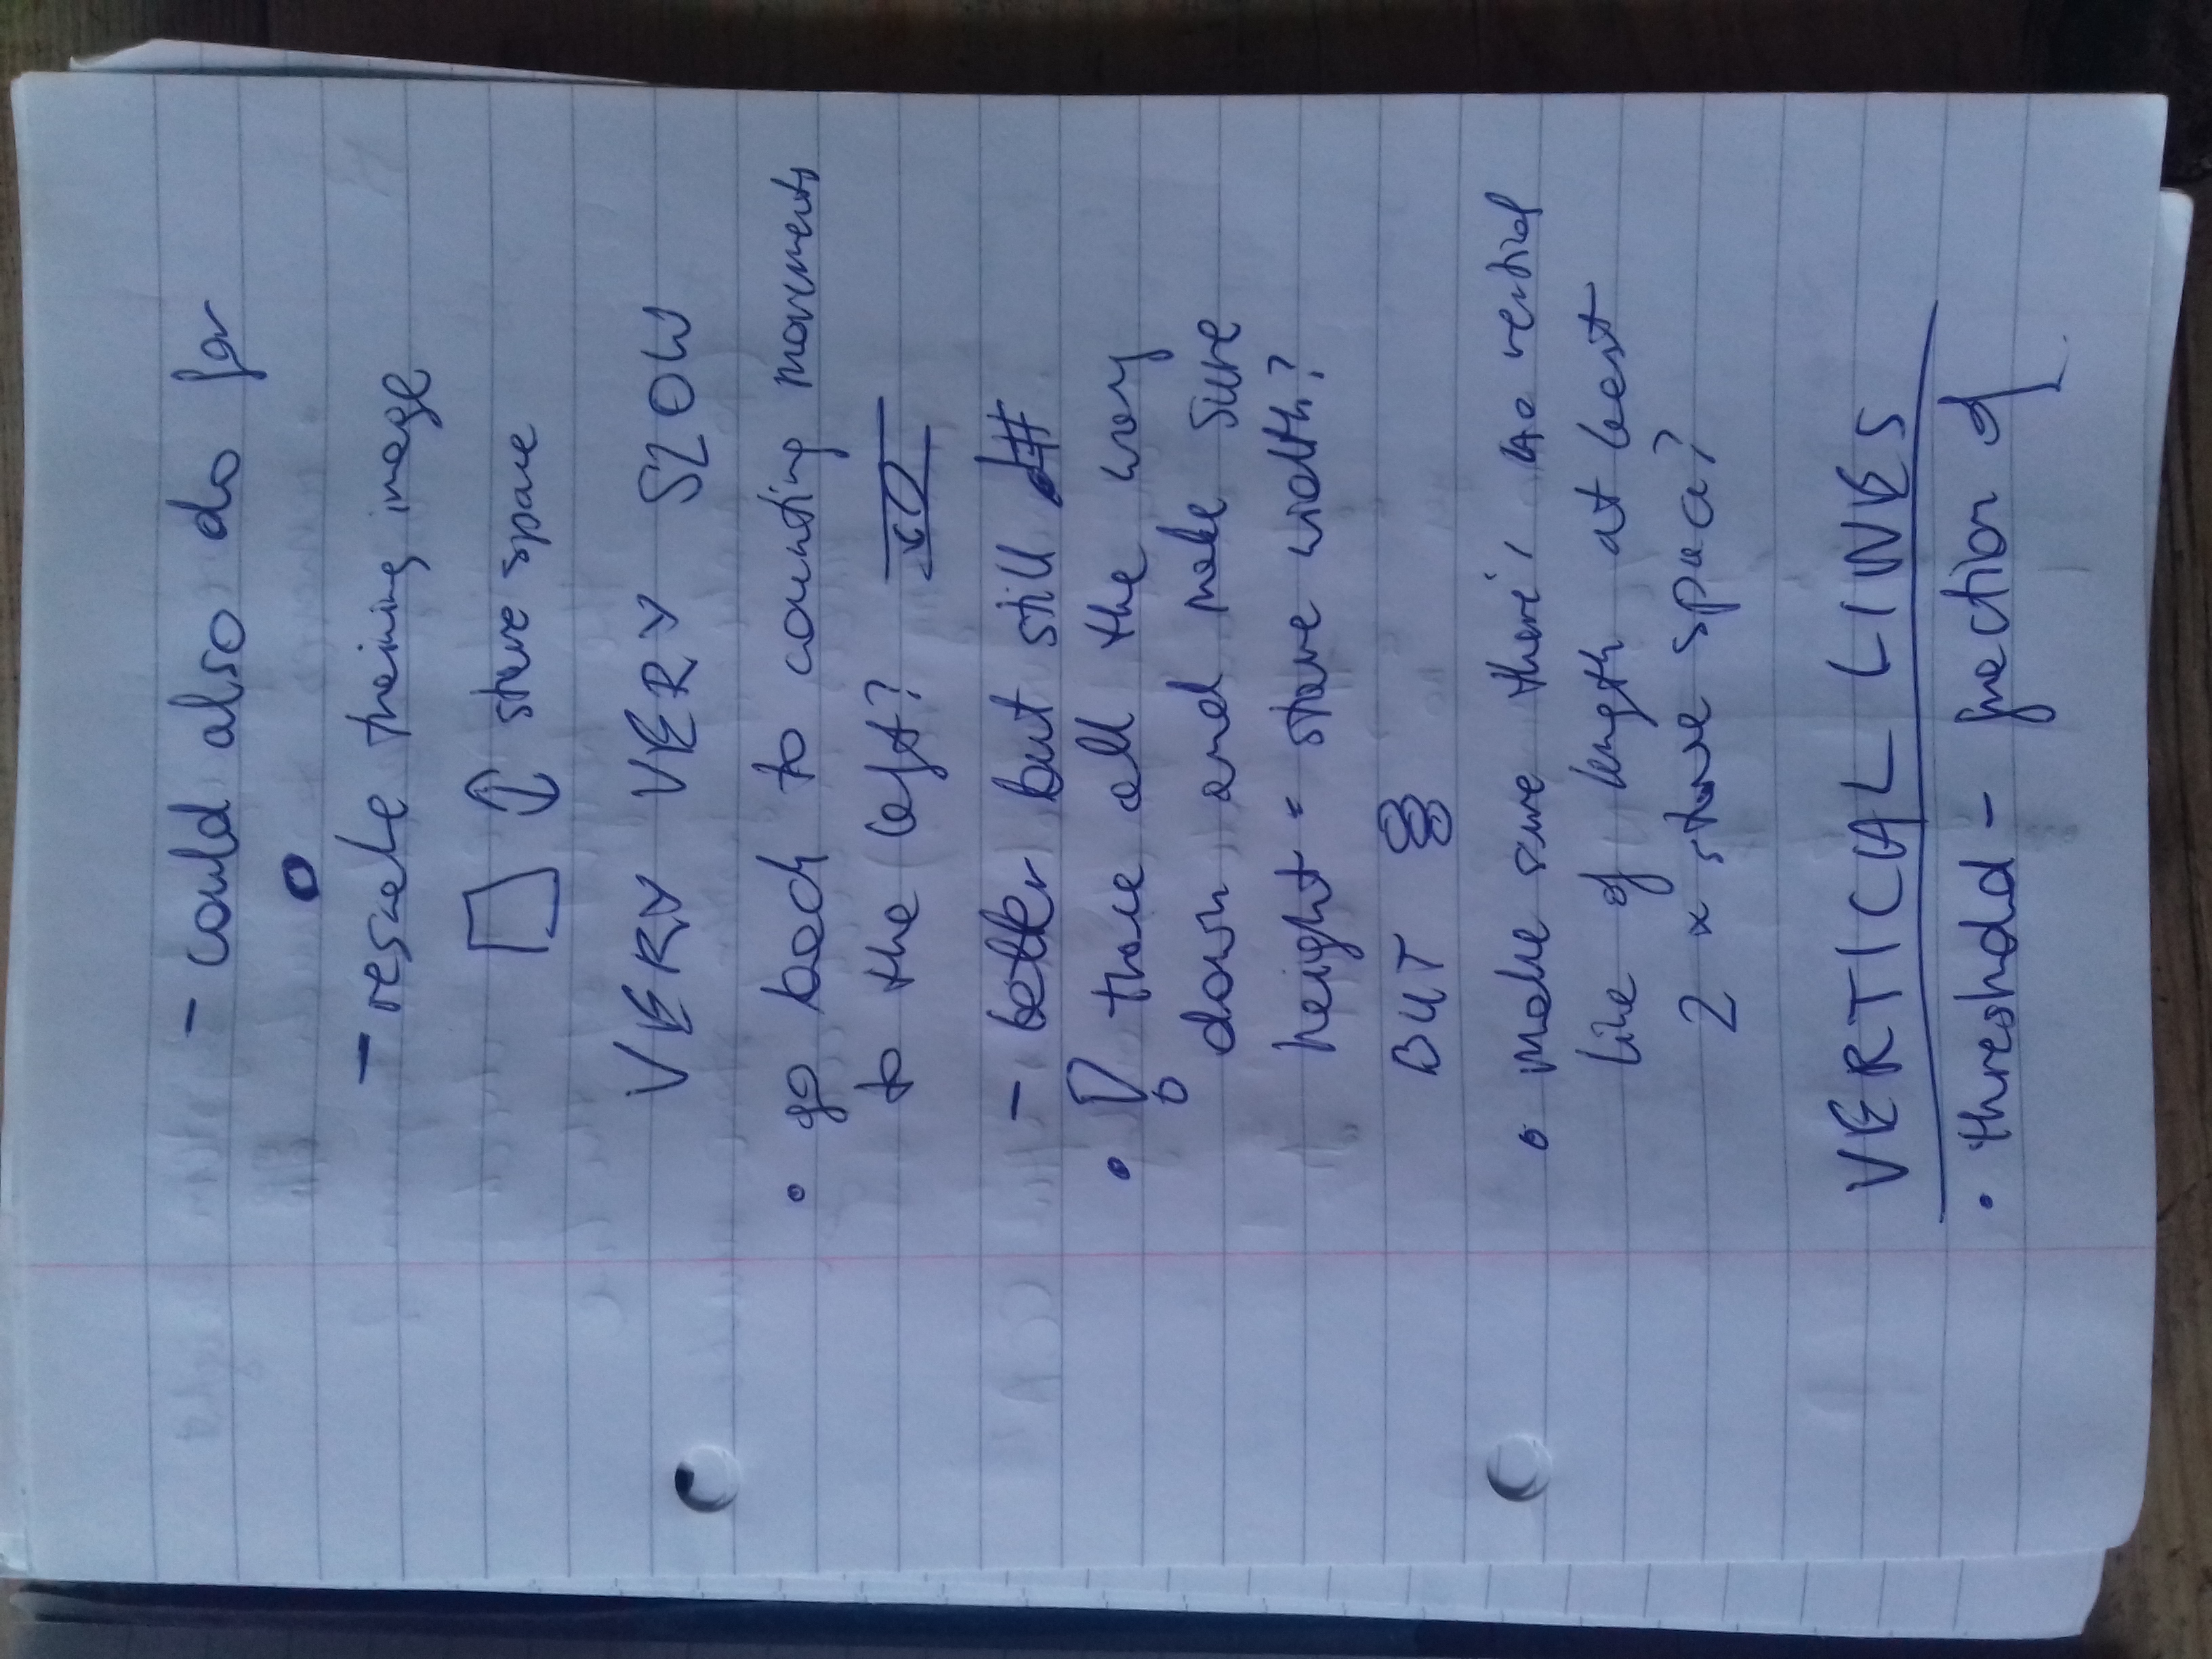 - could also do for
- rescale training image
stave space
VERY VERY SLOW
• go back to counting movements
to the left?
- better but still #
• ! trace all the way
down and make sure
height = stave width?
BUT
• make sure there's no vertical
line of length at least
2 x stave space?
VERTICAL LINES
• threshold - fraction of